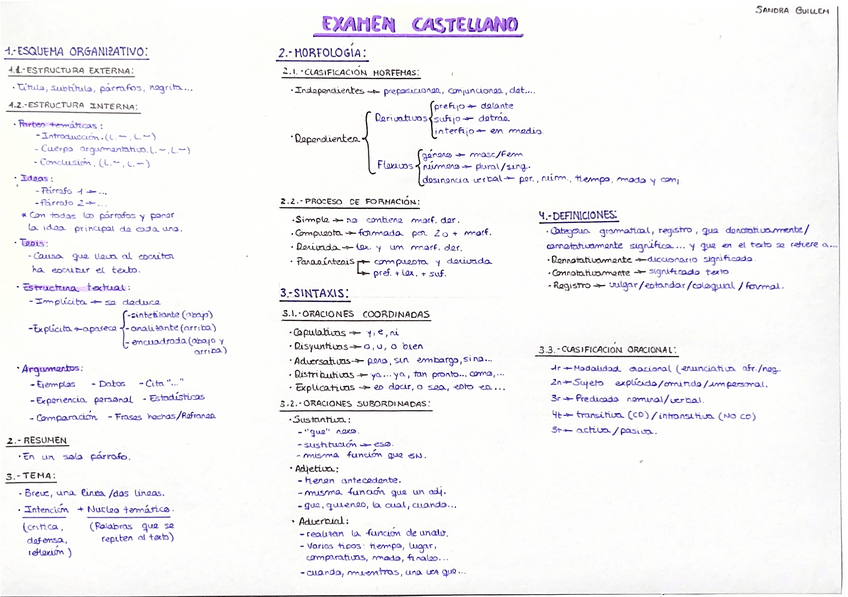 SANDRA GUILLEM
EXAMEN CASTELLANO
1.-ESQUEMA ORGANIZATIVO:
1.1.-ESTRUCTURA EXTERNA:
· Título, subtítulo, párrafos, negrita...
1.2.-ESTRUCTURA INTERNA:
· Partes temáticas:
- Introducción. (L.-, L.-)
- Cuerpo argumentativo. (L.-, L.-)
- Conclusión, (L.-, L.-)
· Ideas:
- Párrafo 1 → ...
- Párrafo 2 → ...
* Con todos los párrafos y poner
la idea principal de cada uno.
· Tesis:
- Causa que lleva al escritor
ha escribir el texto.
· Estructura textual:
- Implícita → se deduce
- Explícita → aparece
- sintetizante (abajo)
- analizante (arriba)
- encuadrada (abajo y
arriba)
· Argumentos:
- Ejemplos - Datos - Cita "..."
- Experiencia personal - Estadísticas
- Comparación - Frases hechas/Refranes
2.-RESUMEN
· En un solo párrafo.
3.-TEMA:
· Breve, una línea/dos líneas.
· Intención + Nucleo temático.
(crítica, (Palabras que se
defensa, repiten al texto)
reflexión)
2.-MORFOLOGÍA:
2.1.-CLASIFICACIÓN MORFEMAS:
· Independientes → preposiciones, conjunciones, det...
· Dependientes
Derivativos
prefijo → delante
sufijo → detrás
interfijo → en medio
Flexivos
género → masc/fem
número → plural/sing.
desinencia verbal → per., núm., tiempo, modo y conj
2.2.-PROCESO DE FORMACIÓN:
· Simple → no contiene morf. der.
· Compuesta → formada por 2 o + morf.
· Derivada → lex. y un morf. der.
· Parasíntesis → compuesta y derivada
→ pref. + lex. + suf.
3.-SINTAXIS:
3.1.-ORACIONES COORDINADAS
· Copulativas → y, e, ni
· Disyuntivas → o, u, o bien
· Adversativas → pero, sin embargo, sino...
· Distributivas → ya...ya, tan pronto... como,...
· Explicativas → es decir, o sea, esto es...
3.2.-ORACIONES SUBORDINADAS:
· Sustantiva:
- "que" nexo.
- sustitución → eso.
- misma función que SN.
· Adjetiva:
- tienen antecedente.
- misma función que un adj.
- que, quienes, la cual, cuando...
· Adverbial:
- realizan la función de un adv.
- Varios tipos: tiempo, lugar,
comparativas, modo, finales...
- cuando, mientras, una vez que...
4.-DEFINICIONES:
· Categoria gramatical, registro, que denotativamente/
connotativamente significa... y que en el texto se refiere a...
· Dennotativamente → diccionario significado.
· Connotativamente → significado texto.
· Registro → vulgar/estandar/coloquial/formal.
3.3.-CLASIFICACIÓN ORACIONAL:
1r → Modalidad oracional (enunciativa afr/neg.
2n → Sujeto explícido/omitido/impersonal.
3r → Predicado nominal/verbal.
4t → transitiva (CD)/intransitiva (NO CD)
5t → activa/pasiva.